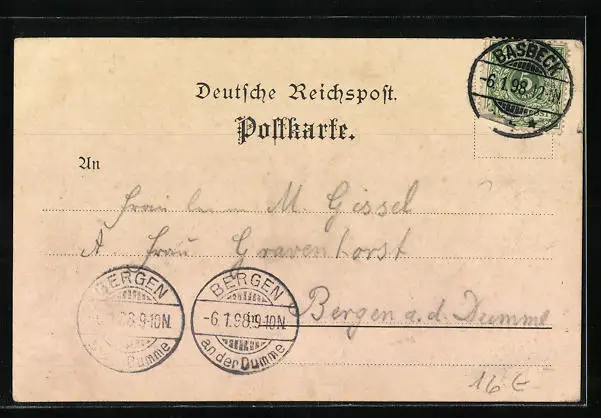 BASBECK
-6.1.98.12-N
Deutsche Reichspost.
Postkarte.
An
Fräulein M. Gissel
A Frau Gravenhorst
BERGEN
-6.1.98.9-10N.
an der Dumme
BERGEN
-6.1.98.9-10N.
an der Dumme
Bergen a. d. Dumme
16 E